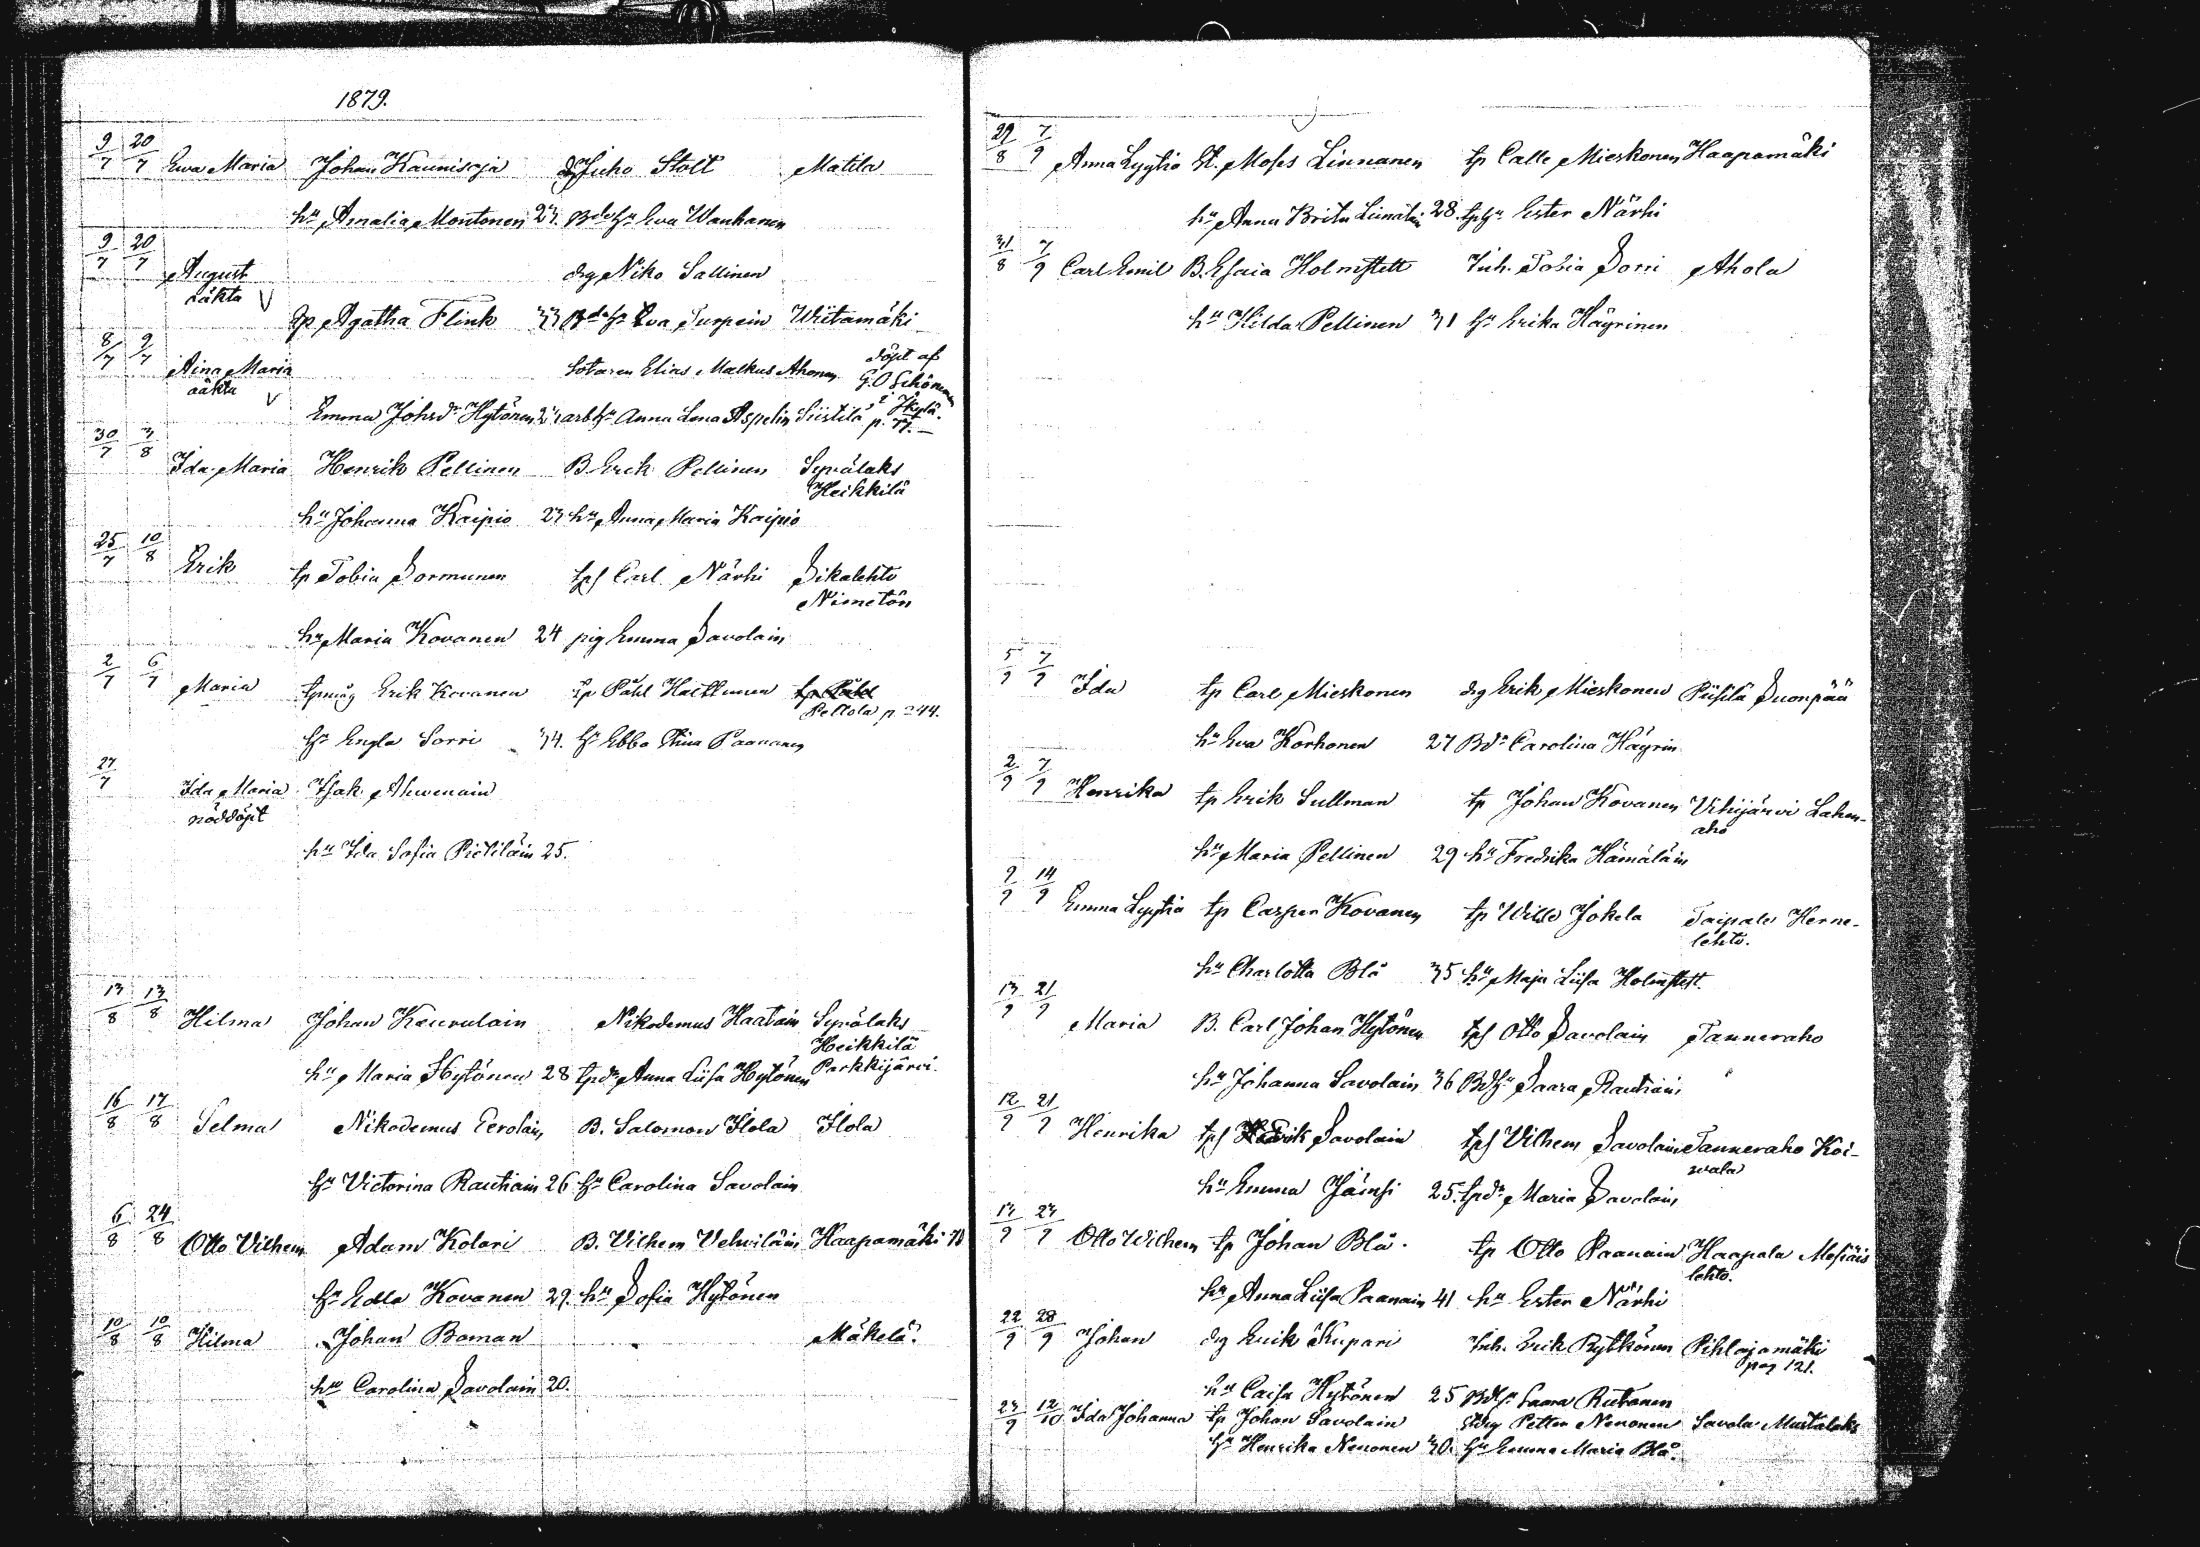 1879.
9/7 20/7 Ewa Maria Johan Kaunisoja Juho Stolt Matila
hu Amalia Montonen 23. Bdehu Eva Wanhanen
9/7 20/7 August drg Niko Sallinen
oäkta V
tp Agatha Flink 33 Bdehu Eva Turpein Wiitamäki
8/7 9/7 Aina Maria Sotaren Elias Malkus Ahonen döpt af
oäkta V G.O Schöneman
Emma Johsdr Hytönen 21 arbhu Anna Lena Aspelin Siistilä i Jkylä.
p. 77.
30/7 3/8 Ida Maria Henrik Pellinen B. Erik Pellinen Syvälaks
Heikkilä
hu Johanna Kaipio 23 hu Anna Maria Kaipio
25/7 10/8 Erik tp Tobia Sormunen tps Carl Närhi Sikalehto
Nimetön
hu Maria Kovanen 24 pig Emma Savolain
2/7 6/7 Maria tpmåg Erik Kovanen tp Påhl Hattunen tp Påhl
Peltola p 244.
hu Engla Sorri 34. hu Ebba Stina Paananen
27/7 Ida Maria Isak Ahvenain
nöddöpt
hu Ida Sofia Pietiläin 25.
13/8 13/8 Hilma Johan Kauvulain Nikodemus Haatain Syvälaks
Heikkilä
hu Maria Hytönen 28 tpdr Anna Liisa Hytönen Parkkijärvi.
16/8 17/8 Selma Nikodemus Eerolain B. Salomon Ilola Ilola
hu Victorina Rautiain 26 hu Carolina Savolain
6/8 24/8 Otto Vilhem Adam Kolari B. Vilhem Vehviläin Haapamäki
hu Edla Kovanen 29. hu Sofia Hytönen
10/8 10/8 Hilma Johan Boman Mäkelä.
hu Carolina Savolain 20.
29/8 7/9 Anna Lyytia Moses Linnanen tp Calle Mieskonen Haapamäki
hu Anna Brita Liimatain 28. tphu Ester Närhi
31/8 7/9 Carl Emil B. Esaia Holmstett Inh. Tobia Sorri Ahola
hu Hilda Pellinen 31 hu Erika Häyrinen
5/9 7/9 Ida tp Carl Mieskonen drg Erik Mieskonen Piisilä Suonpää
hu Eva Korhonen 27 Bdr Carolina Häyrin
2/9 7/9 Henrika tp Erik Sullman tp Johan Kovanen Vihijärvi Lahen-
aho
hu Maria Pellinen 29 hu Fredrika Hämäläin
9/9 14/9 Emma Lyytia tp Casper Kovanen tp Wille Jokela Taipale Herne-
lehto.
hu Charlotta Blå 35 hu Maja Liisa Holmstett.
13/9 21/9 Maria B. Carl Johan Hytönen tps Otto Savolain Tanneraho
hu Johanna Savolain 36 Bdhu Saara Rautiain
12/9 21/9 Henrika tps Hedrik Savolain tps Vilhem Savolain Tanneraho Koi-
vala
hu Emma Jämsi 25. tpdr Maria Savolain
13/9 23/9 Otto Wilhem tp Johan Blå. tp Otto Paanain Haapala Mesiäis
lehto.
hu Anna Liisa Paanain 41 hu Ester Närhi
22/9 28/9 Johan drg Erik Kupari Inh. Erik Rytkönen Pihlajamäki
pag 121.
hu Caisa Hytönen 25 Bdhu Saara Rutanen
23/9 12/10 Ida Johanna tp Johan Savolain Petter Nenonen Savola Mustalaks
hu Henrika Nenonen 30. hu Emma Maria Blå.